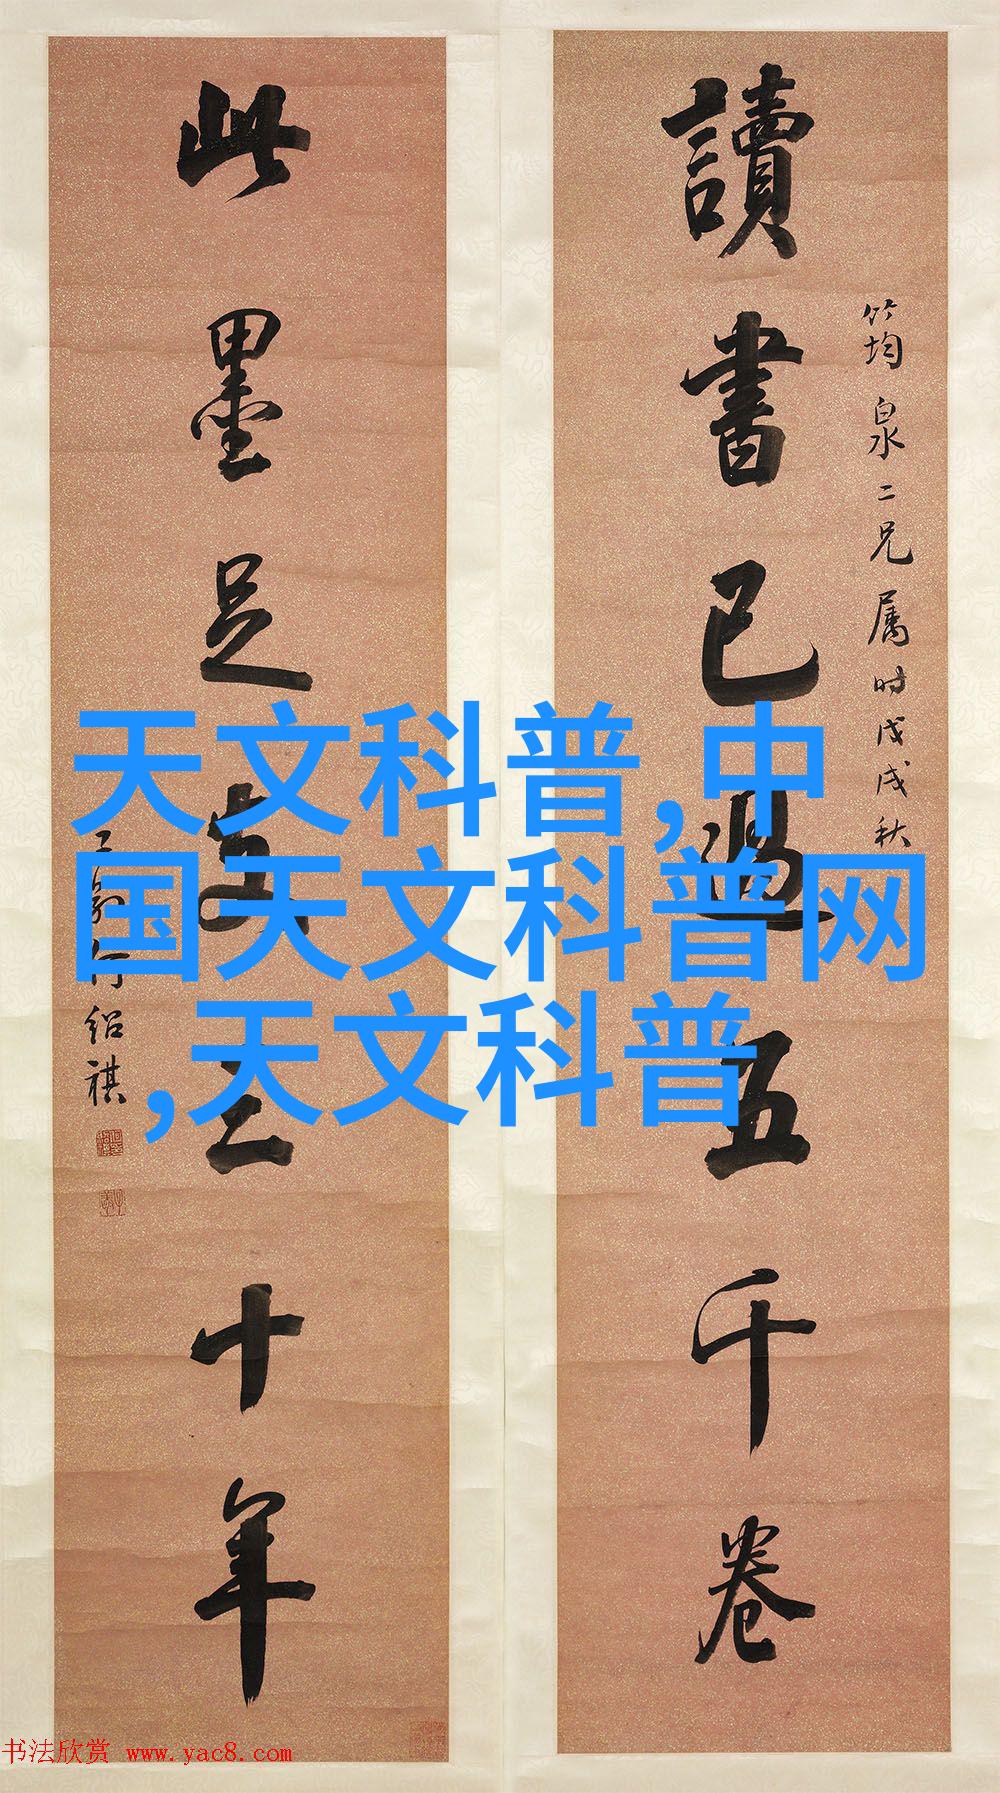 讀書已過五千卷
筠泉二兄属时戊戌秋
此墨足支三十年
紹祺
天文科普,中
国天文科普网
,天文科普
书法欣赏 www.yac8.com